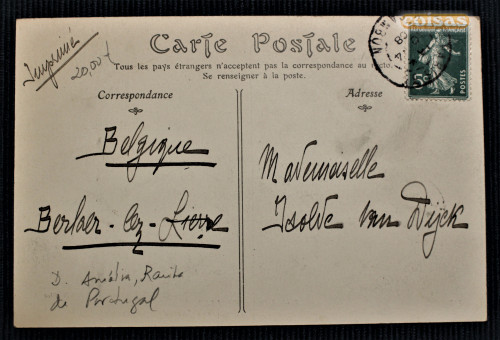 Imprimé
20,00 €
Carte Postale
Tous les pays étrangers n'acceptent pas la correspondance au recto.
Se renseigner à la poste.
Correspondance
Adresse
coisas
5c
POSTES
Belgique
Berlaer-lez-Lierre
Mademoiselle
Isolde van Dijck
D. Amélia, Rainha
de Portugal